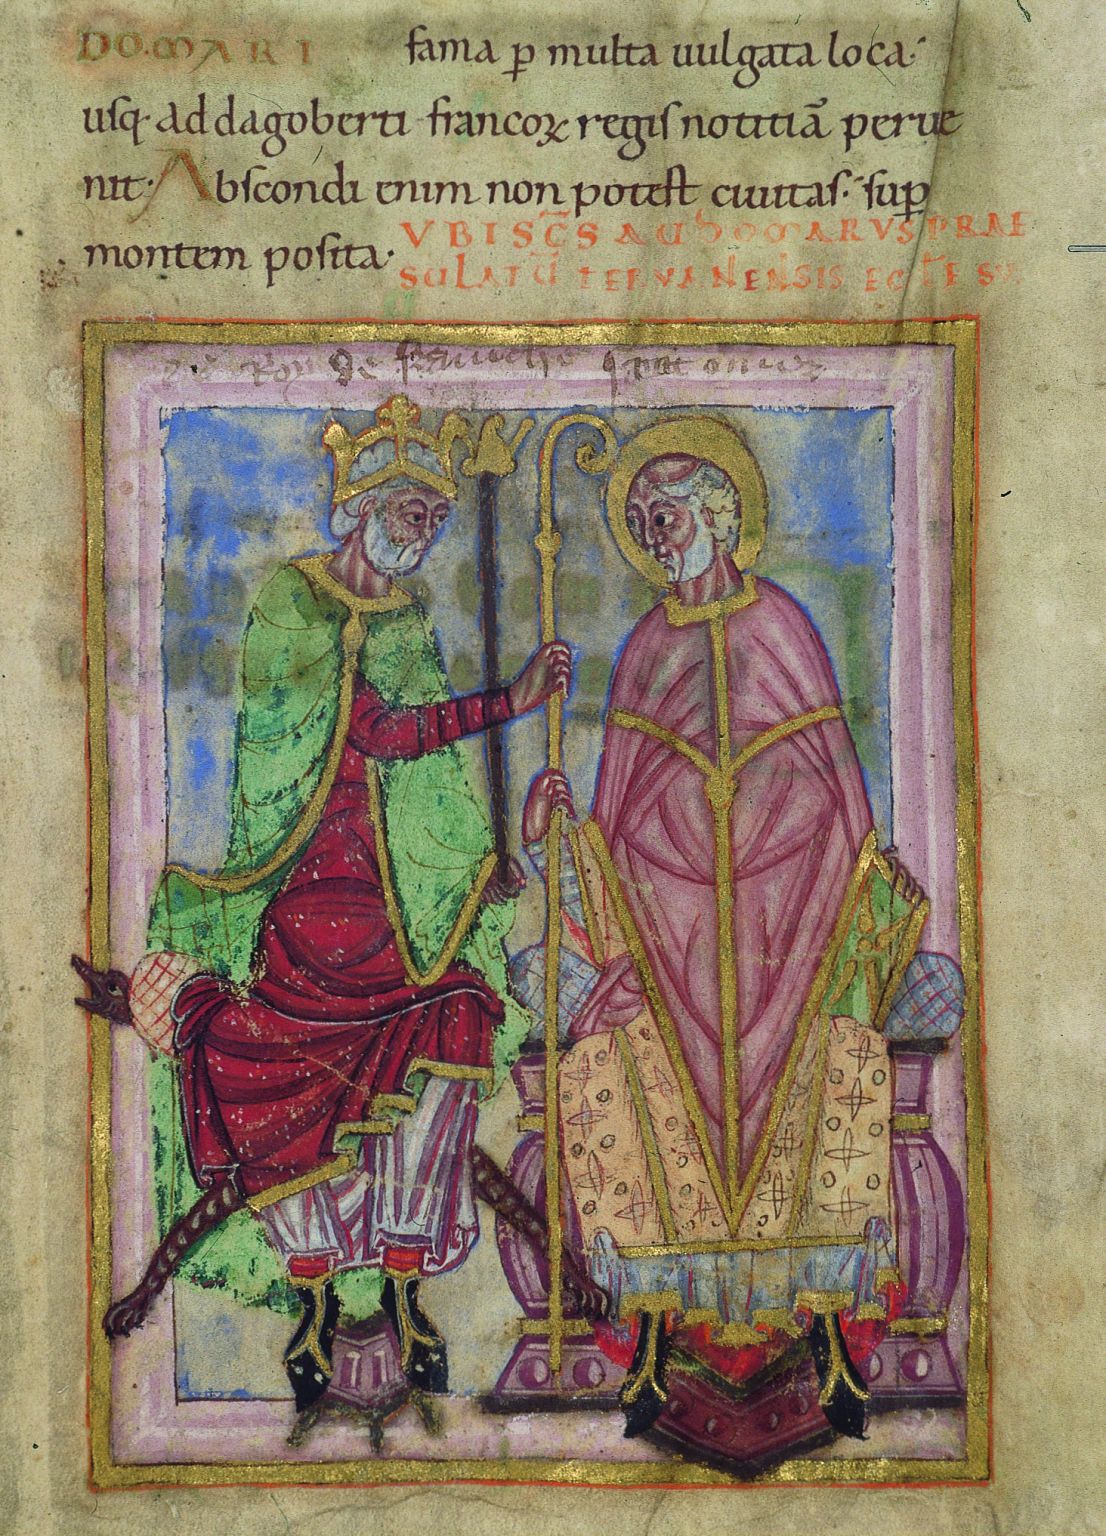 DO·MARI fama ꝑ multa uulgata loca·
usq· ad dagoberti francoꝝ regis notitiā perue
nit· Abscondi enim non potest ciuitas· sup̄
montem posita· VBI SC̄S AUDOMARVS PRAE
SULATŪ TERVANENSIS ECL̄E